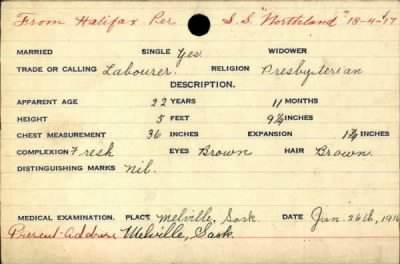 From Halifax Per S.S. "Northland" 18-4-17
MARRIED SINGLE Yes. WIDOWER
TRADE OR CALLING Labourer. RELIGION Presbyterian
DESCRIPTION.
APPARENT AGE 22 YEARS 11 MONTHS
HEIGHT 5 FEET 9¼ INCHES
CHEST MEASUREMENT 36 INCHES EXPANSION 1¾ INCHES
COMPLEXION Fresh EYES Brown HAIR Brown.
DISTINGUISHING MARKS nil.
MEDICAL EXAMINATION. PLACE Melville, Sask. DATE Jan. 26th, 1916
Present Address Melville, Sask.